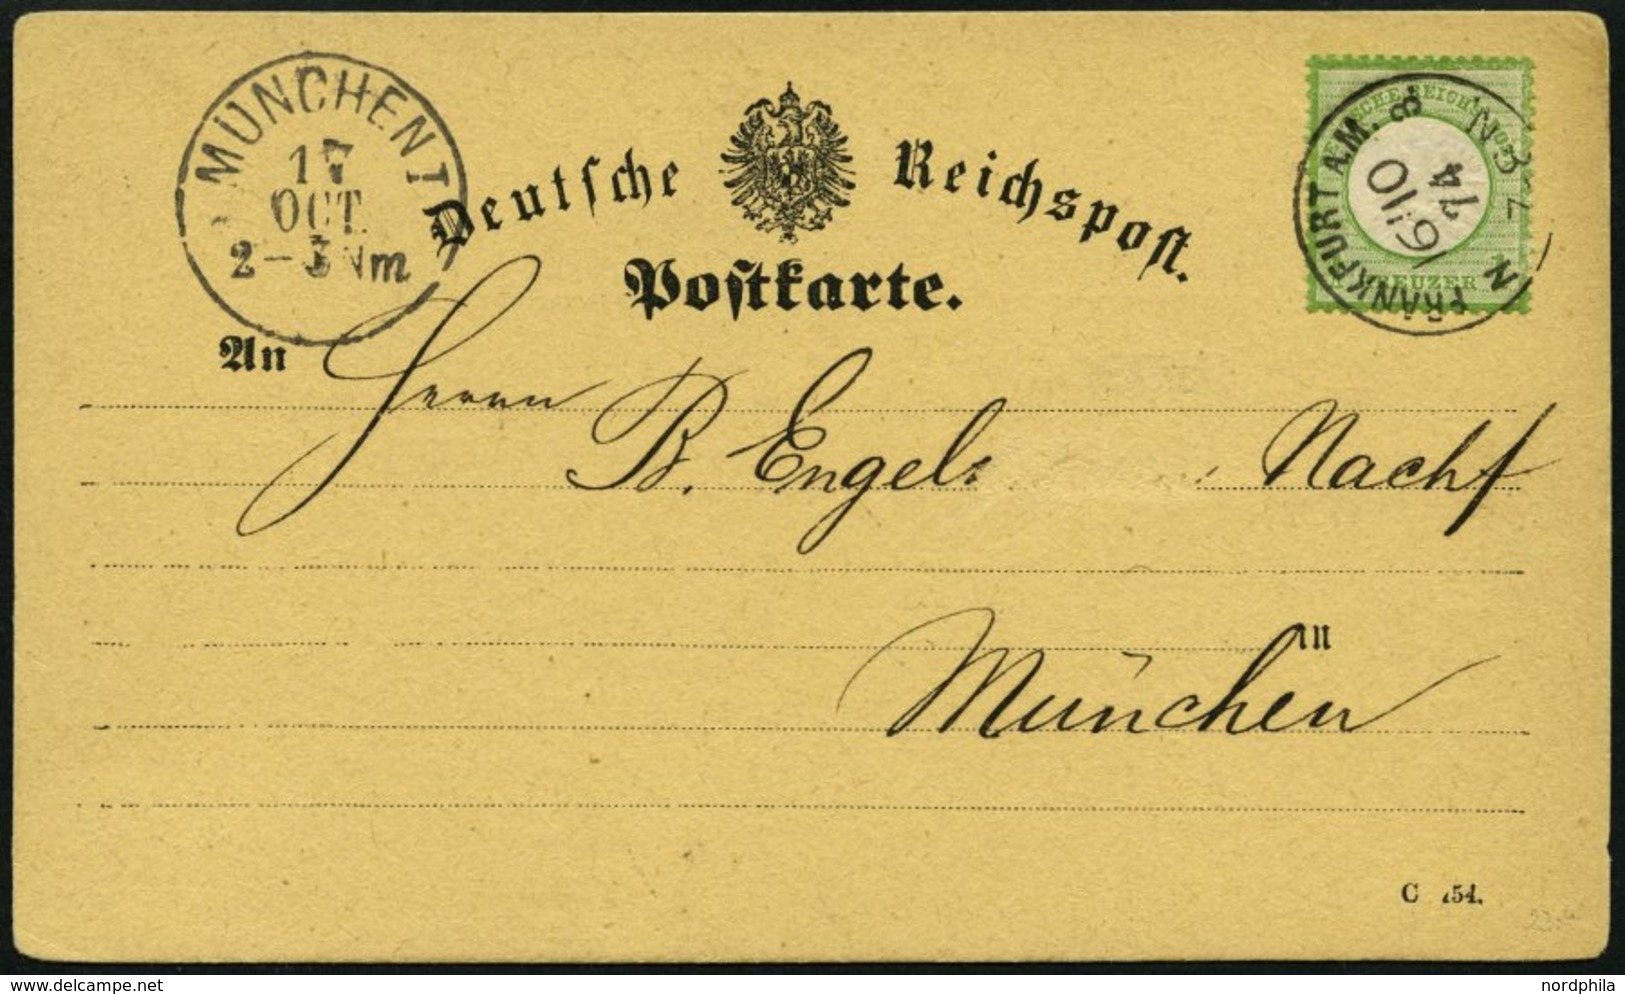 MÜNCHEN I
17
OCT.
2-3 Nm
Deutsche Reichspost.
Postkarte.
FRANKFURT A.M. 8
16/10
74
KREUZER
An
Herrn
B. Engel. Nachf
in
München
C 154.
nordphila